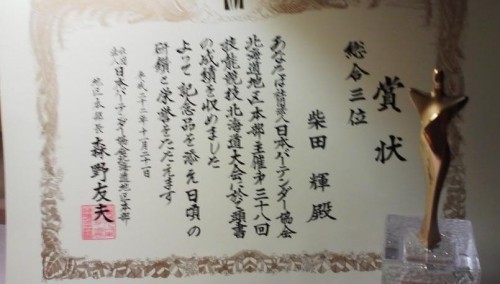 賞状
総合三位
柴田 輝 殿
あなたは社団法人日本バーテンダー協会
北海道地区本部主催第三十八回
技能競技北海道大会に於て頭書
の成績を収めました
よって記念品を添え日頃の
研鑽と栄誉をたたえます
平成二十二年十一月二十一日
社団法人日本バーテンダー協会北海道地区本部
地区本部長 森野友夫